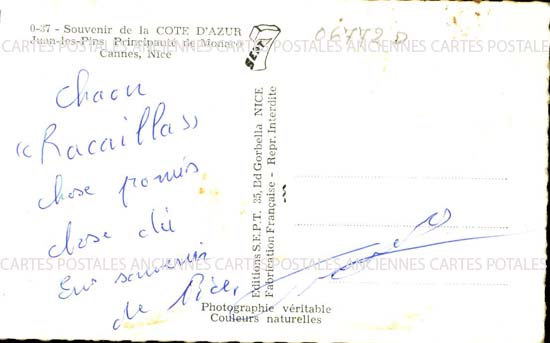 0-37 - Souvenir de la COTE D'AZUR
Juan-les-Pins, Principauté de Monaco
Cannes, Nice
SEPT
06772 D
CARTES POSTALES ANCIENNES CARTES POSTALES ANCIENNES CARTES POSTALES
«Racaillas»
chose promis
chose dû
En souvenir
de
Editions S.E.P.T. 35, Ed Gorbella NICE
Fabrication Française - Repr. Interdite
CARTES POSTALES ANCIENNES CARTES POSTALES ANCIENNES CARTES POSTALES
Photographie véritable
Couleurs naturelles